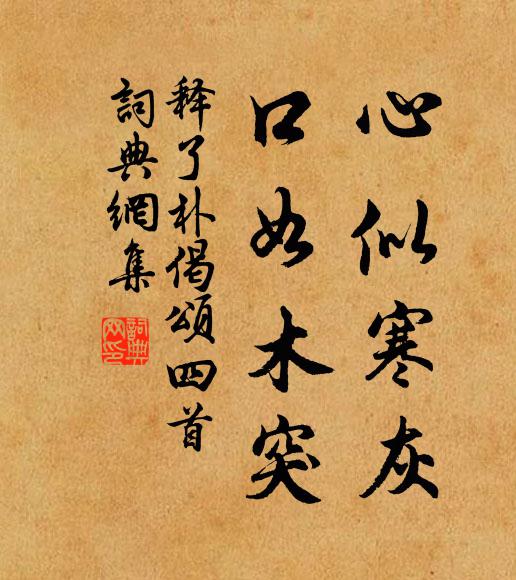 心似寒灰
口如木突
释了朴偈颂四首
詞典網集
詞典